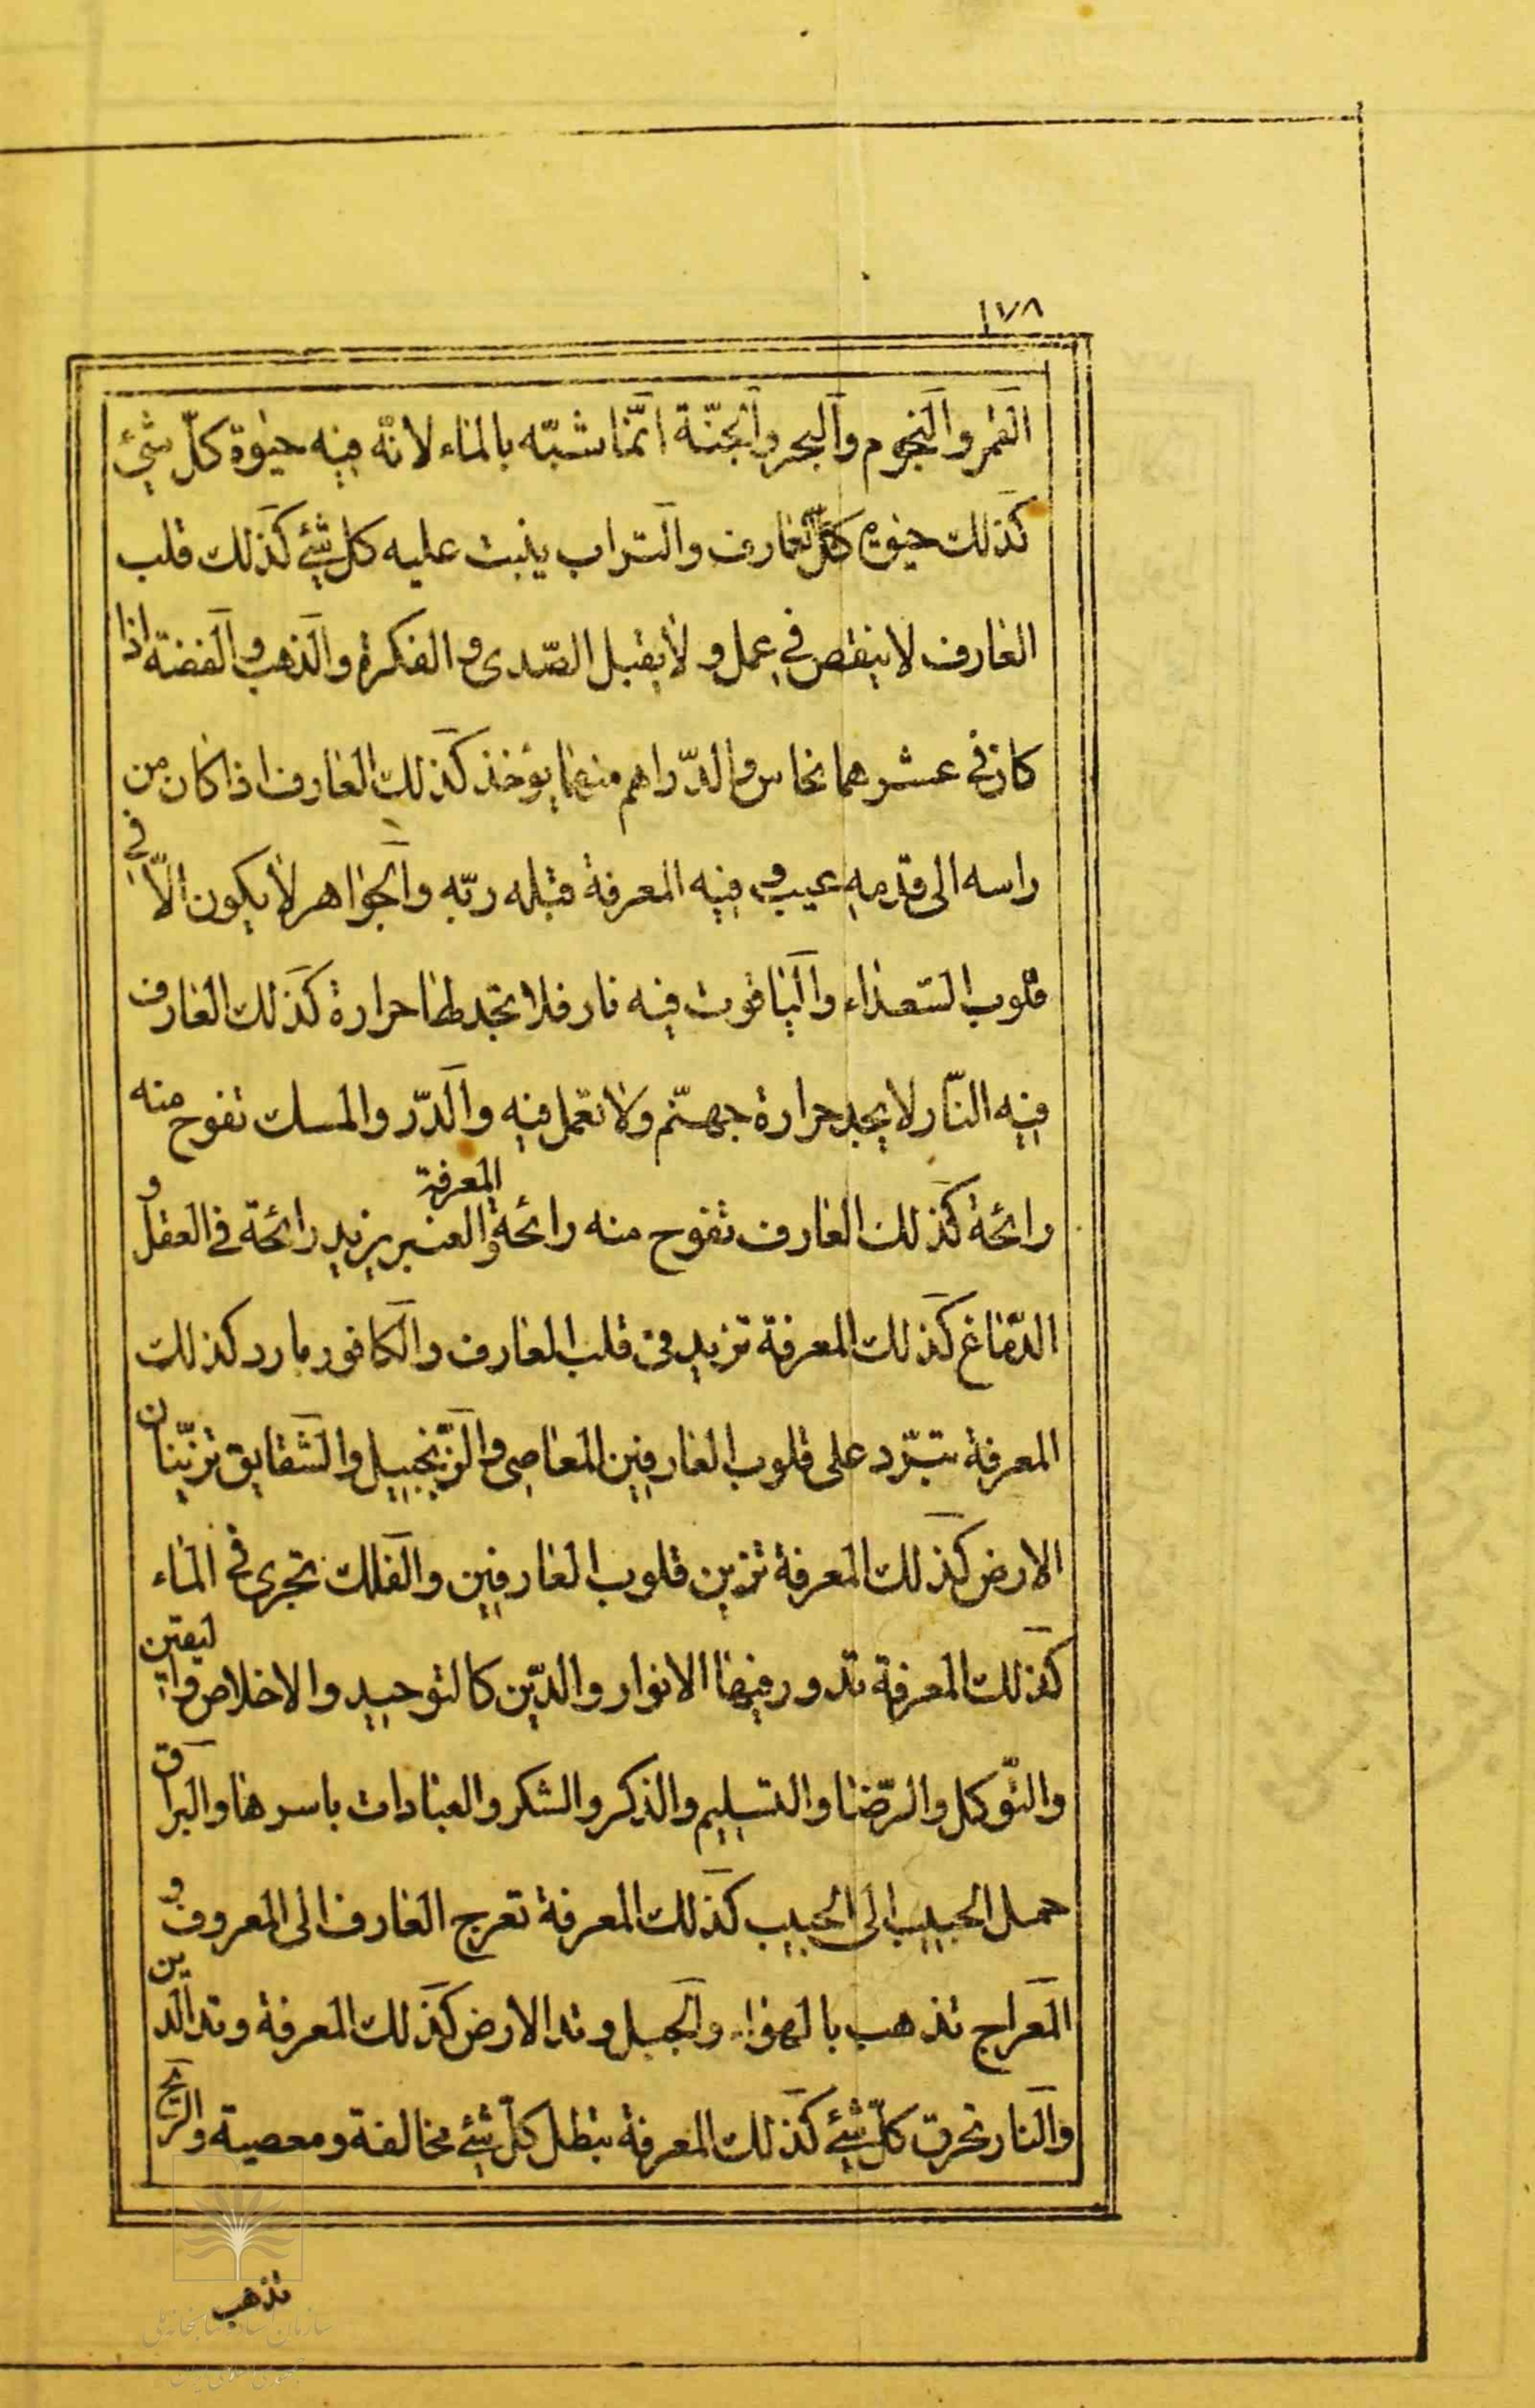 ١٧٨
القمر والنجوم والبحر والجنّة انّما شبّه بالماء لانّه فيه حيٰوة كلّ شئ
كذلك حيٰوة كلّ العارف والتراب ينبت عليه كل شئ كذلك قلب
العارف لا ينقص في عمل و لا يقبل الصّدى و الفكرة والذهب و الفضة اذا
كان في عشر هما نحاس والدّراهم منهما يؤخذ كذلك العارف اذا كان من
راسه الى قدمه عيب و فيه المعرفة قبله ربّه والجواهر لا يكون الّا في
قلوب السّعداء والياقوت فيه نار فلا تجد لها حرارة كذلك العارف
فيه النّار لا يجد حرارة جهنّم ولا تعمل فيه والدّر والمسك تفوح منه
رائحة كذلك العارف تفوح منه رائحة المعرفة والعنبر يزيد رائحة في العقل و
الدّماغ كذلك المعرفة تزيد في قلب العارف والكافور بارد كذلك
المعرفة تبّرد على قلوب العارفين المعاصى والزّنجبيل والشقايق تزيّنان
الارض كذلك المعرفة تزين قلوب العارفين والفلك تجرى في الماء
كذلك المعرفة تدور فيها الانوار والدّين كالتوحيد والاخلاص واليقين
والتّوكل والرّضا والتسليم والذكر والشكر والعبادات باسرها والبراق
حمل الحبيب الى الحبيب كذلك المعرفة تعرج العارف الى المعروف و
المعراج تذهب بالهواء والجبل وتد الارض كذلك المعرفة وتد الدين
والنار تحرق كلّ شئ كذلك المعرفة تبطل كلّ شئ مخالفة ومعصية والريح
تذهب